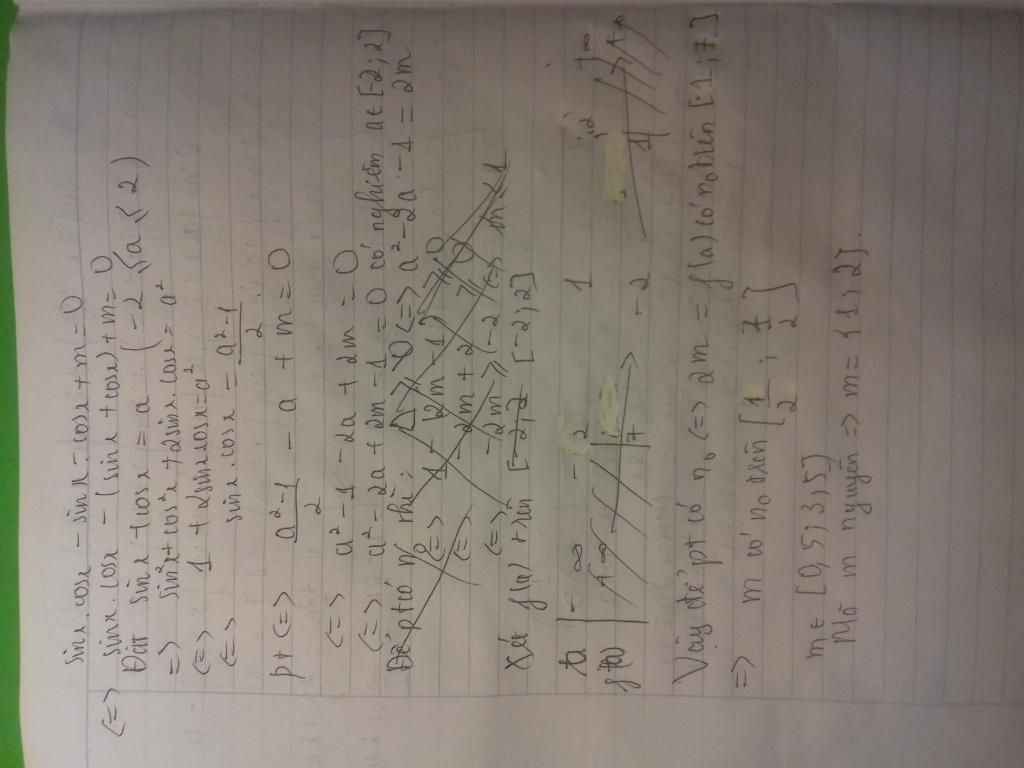 sinx.cosx - sinx - cosx + m = 0
(=) sinx.cosx - (sinx + cosx) + m = 0
Đặt sinx + cosx = a (-2 ≤ a ≤ 2)
=> sin²x + cos²x + 2sinx.cosx = a²
(=) 1 + 2sinxcosx = a²
(=) sinx.cosx = (a²-1)/2
pt (=) (a²-1)/2 - a + m = 0
(=) a² - 1 - 2a + 2m = 0
(=) a² - 2a + 2m - 1 = 0 có nghiệm a ∈ [-2;2]
Để pt có n₀ thì: Δ ≥ 0 (=) a² - 2a - 1 = 2m
(=) 1 - (2m - 1) ≥ 0
(=) -2m + 2 ≥ 0
(=) -2m ≥ -2 (=) m ≤ 1
Xét f(a) trên [-2,2 [-2;2]
a -∞ -2 1 2 +∞
f(a) +∞ 7 -2 -1 +∞
Vậy để pt có n₀ (=) 2m = f(a) có n₀ trên [1;7]
=> m có n₀ trên [1/2 ; 7/2]
m ∈ [0,5; 3,5]
Mà m nguyên => m = {1;2}.